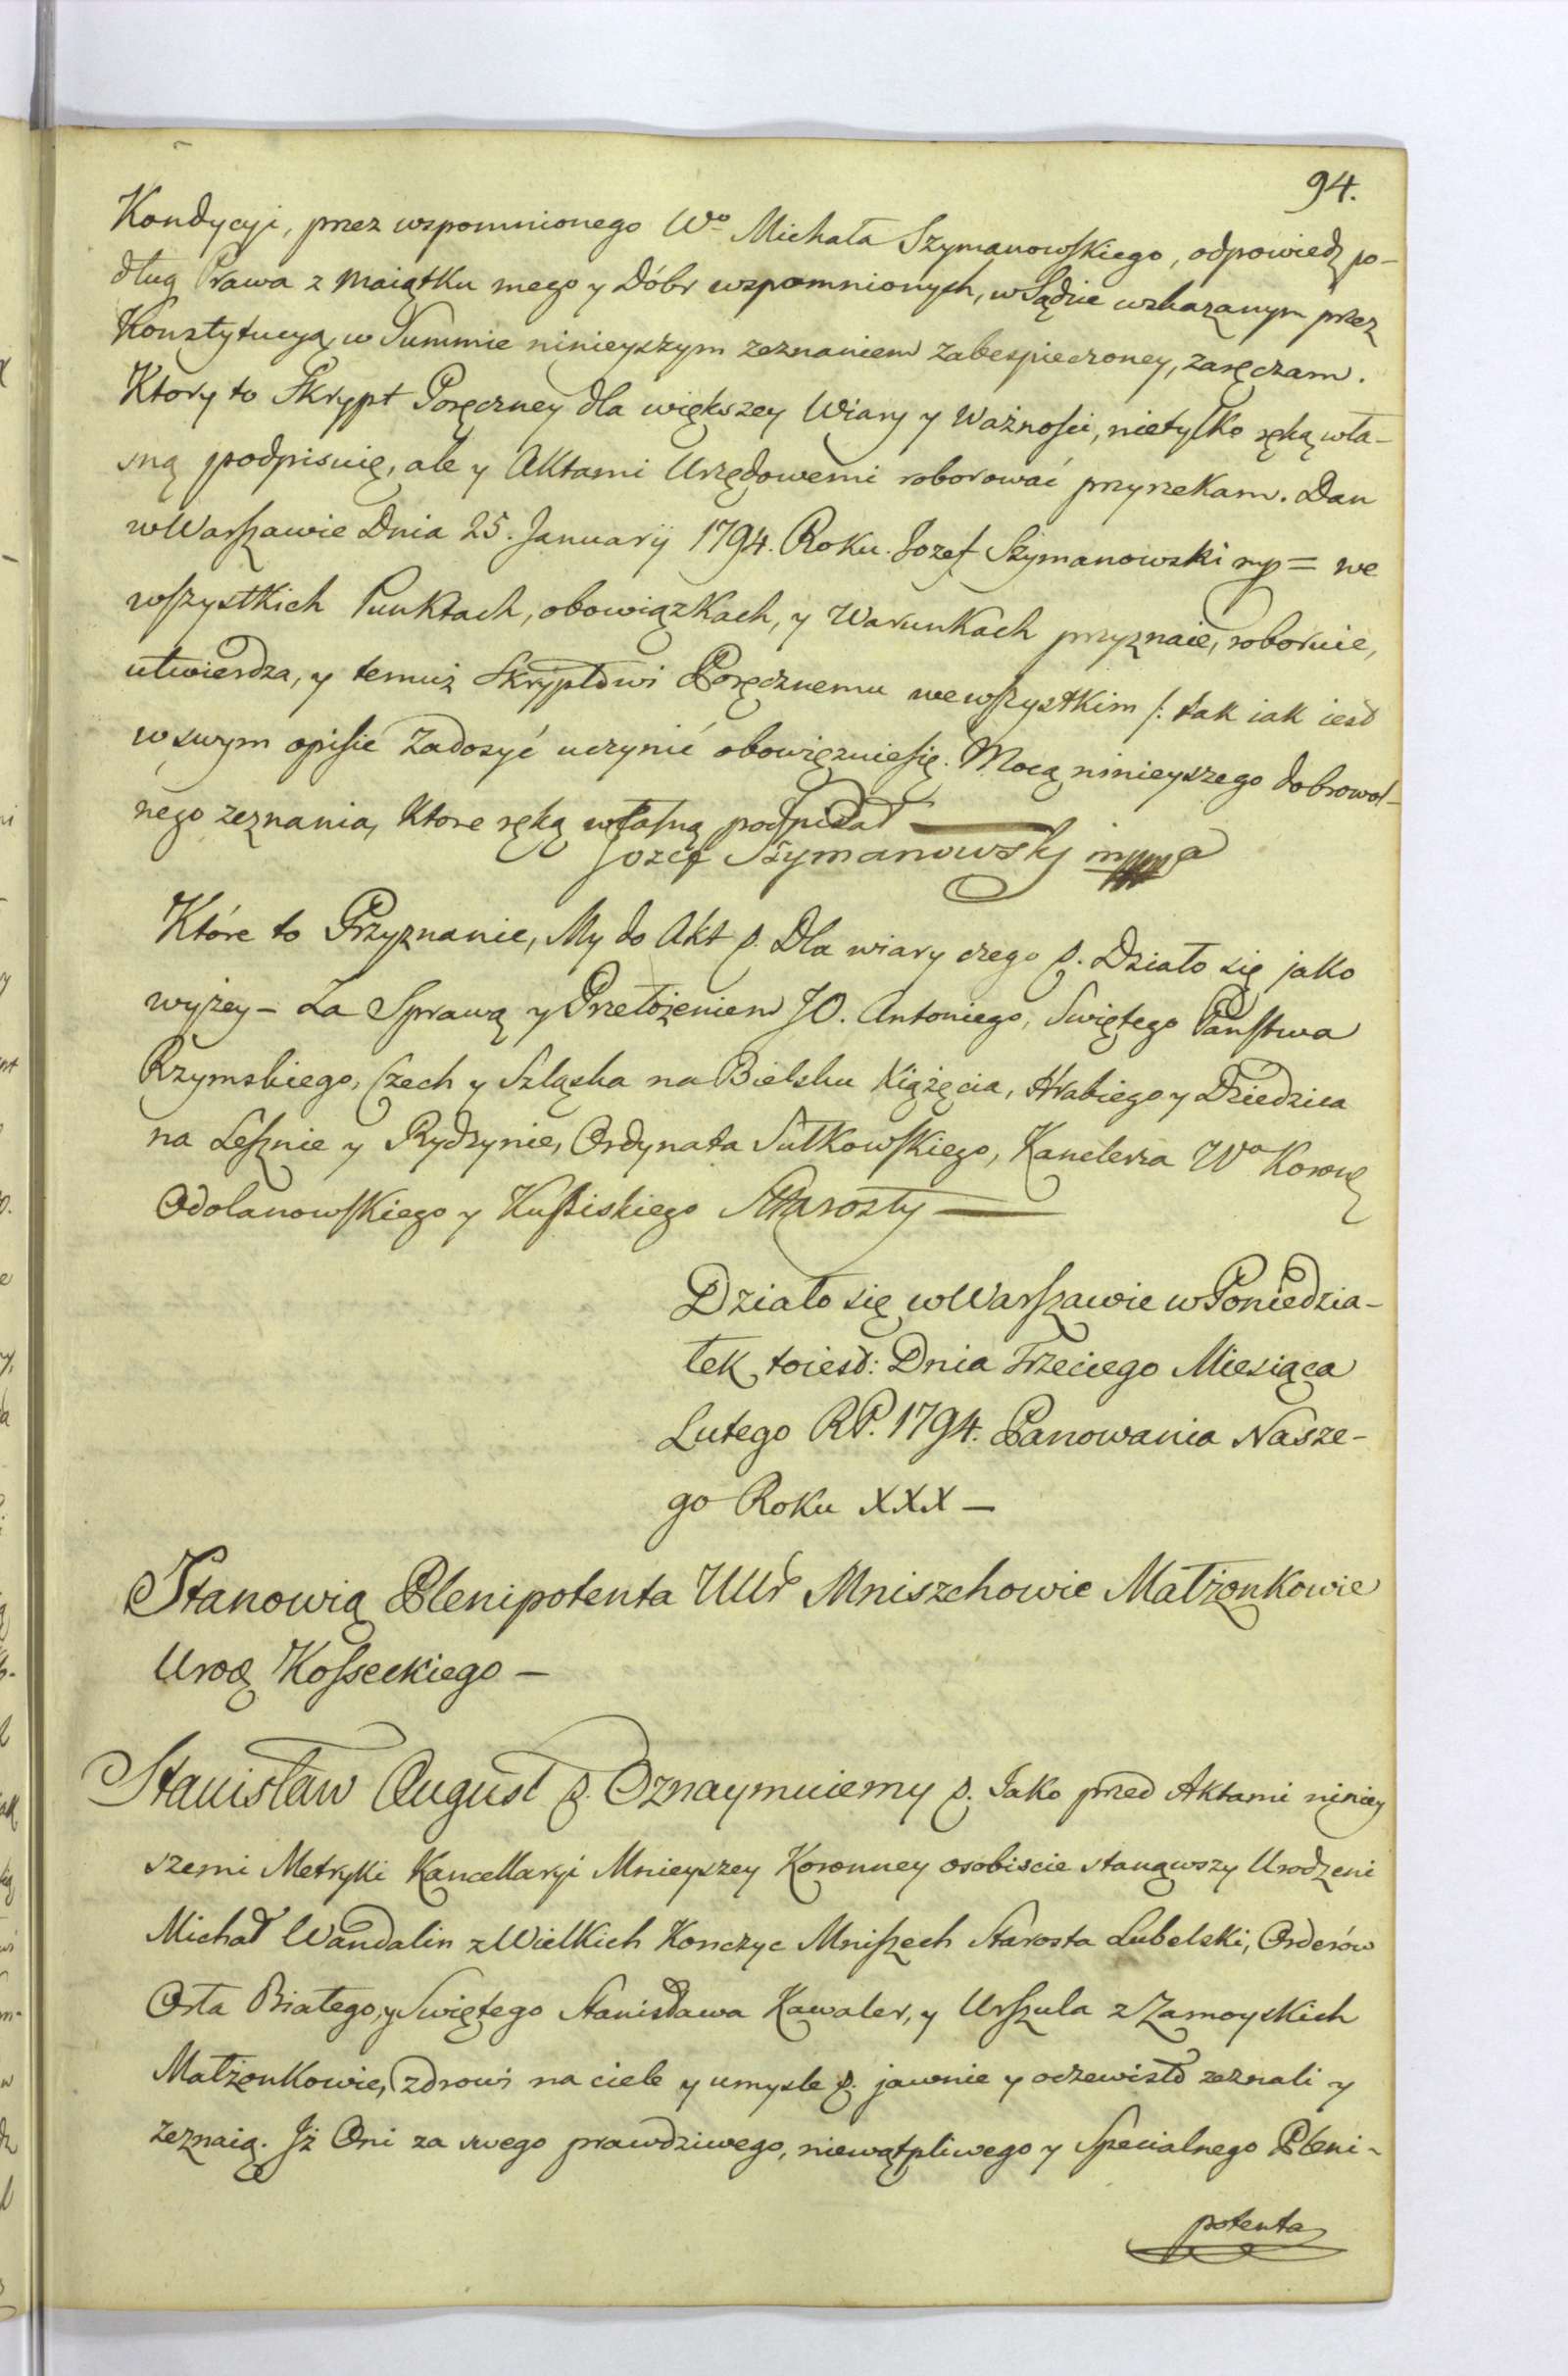 94.
Kondycyi, przez wspomnionego Wo Michała Szymanowskiego, odpowiedz po-
dług Prawa z Maiątku mego y Dóbr wspomnionych, w Sądzie wskazanym przez
Konstytucyą, w Summie ninieyszym zeznaniem zabespieczoney, zaręczam.
Ktory to Skrypt Poręczney dla większey Wiary y Ważności, nietylko ręką wła-
sną podpisuię, ale y Aktami Urzędowemi roborować przyrzekam. Dan
w Warszawie Dnia 25. Januarij 1794. Roku. Jozef Szymanowski mp = we
wszystkich Punktach, obowiązkach, y Warunkach przyznaie, roboruie,
utwierdza, y temuż Skryptowi Poręcznemu we wszystkim /: tak iak iest
w swym opisie zadosyć uczynić obowięzuie się. Mocą ninieyszego dobrowol-
nego zeznania, które ręką własną podpisał —
Jozef Szymanowsky
Które to Przyznanie, My do Akt p. Dla wiary czego p. Działo się jako
wyżey – Za Sprawą y Przełożeniem JO. Antoniego, Swiętego Państwa
Rzymskiego, Czech y Szląska na Bielsku Xiążęcia, Hrabiego y Dziedzica
na Lesznie y Rydzynie, Ordynata Sułkowskiego, Kanclerza Wo Koronę
Odolanowskiego y Starosty —
Działo się w Warszawie w Poniedzia-
łek, toiest: Dnia Trzeciego Miesiąca
Lutego RP. 1794. Panowania Nasze-
go Roku XXX —
Stanowią Plenipotenta UUr Mniszchowie Małżonkowie
Urod Kosseckiego —
Stanisław August p. Oznaymuiemy p. Jako przed Aktami niniey
szemi Metryki Kancellaryi Mnieyszey Koronney osobiscie stanąwszy Urodzeni
Michał Wandalin z Wielkich Konczyc Mniszech Starosta Lubelski, Orderów
Orła Białego, y Swiętego Stanisława Kawaler, y Urszula z Zamoyskich
Małżonkowie, zdrowi na ciele y umysle p. jawnie y oczewisto zeznali y
zeznaią. Jż Oni za swego prawdziwego, niewątpliwego y Specialnego Pleni-
potenta